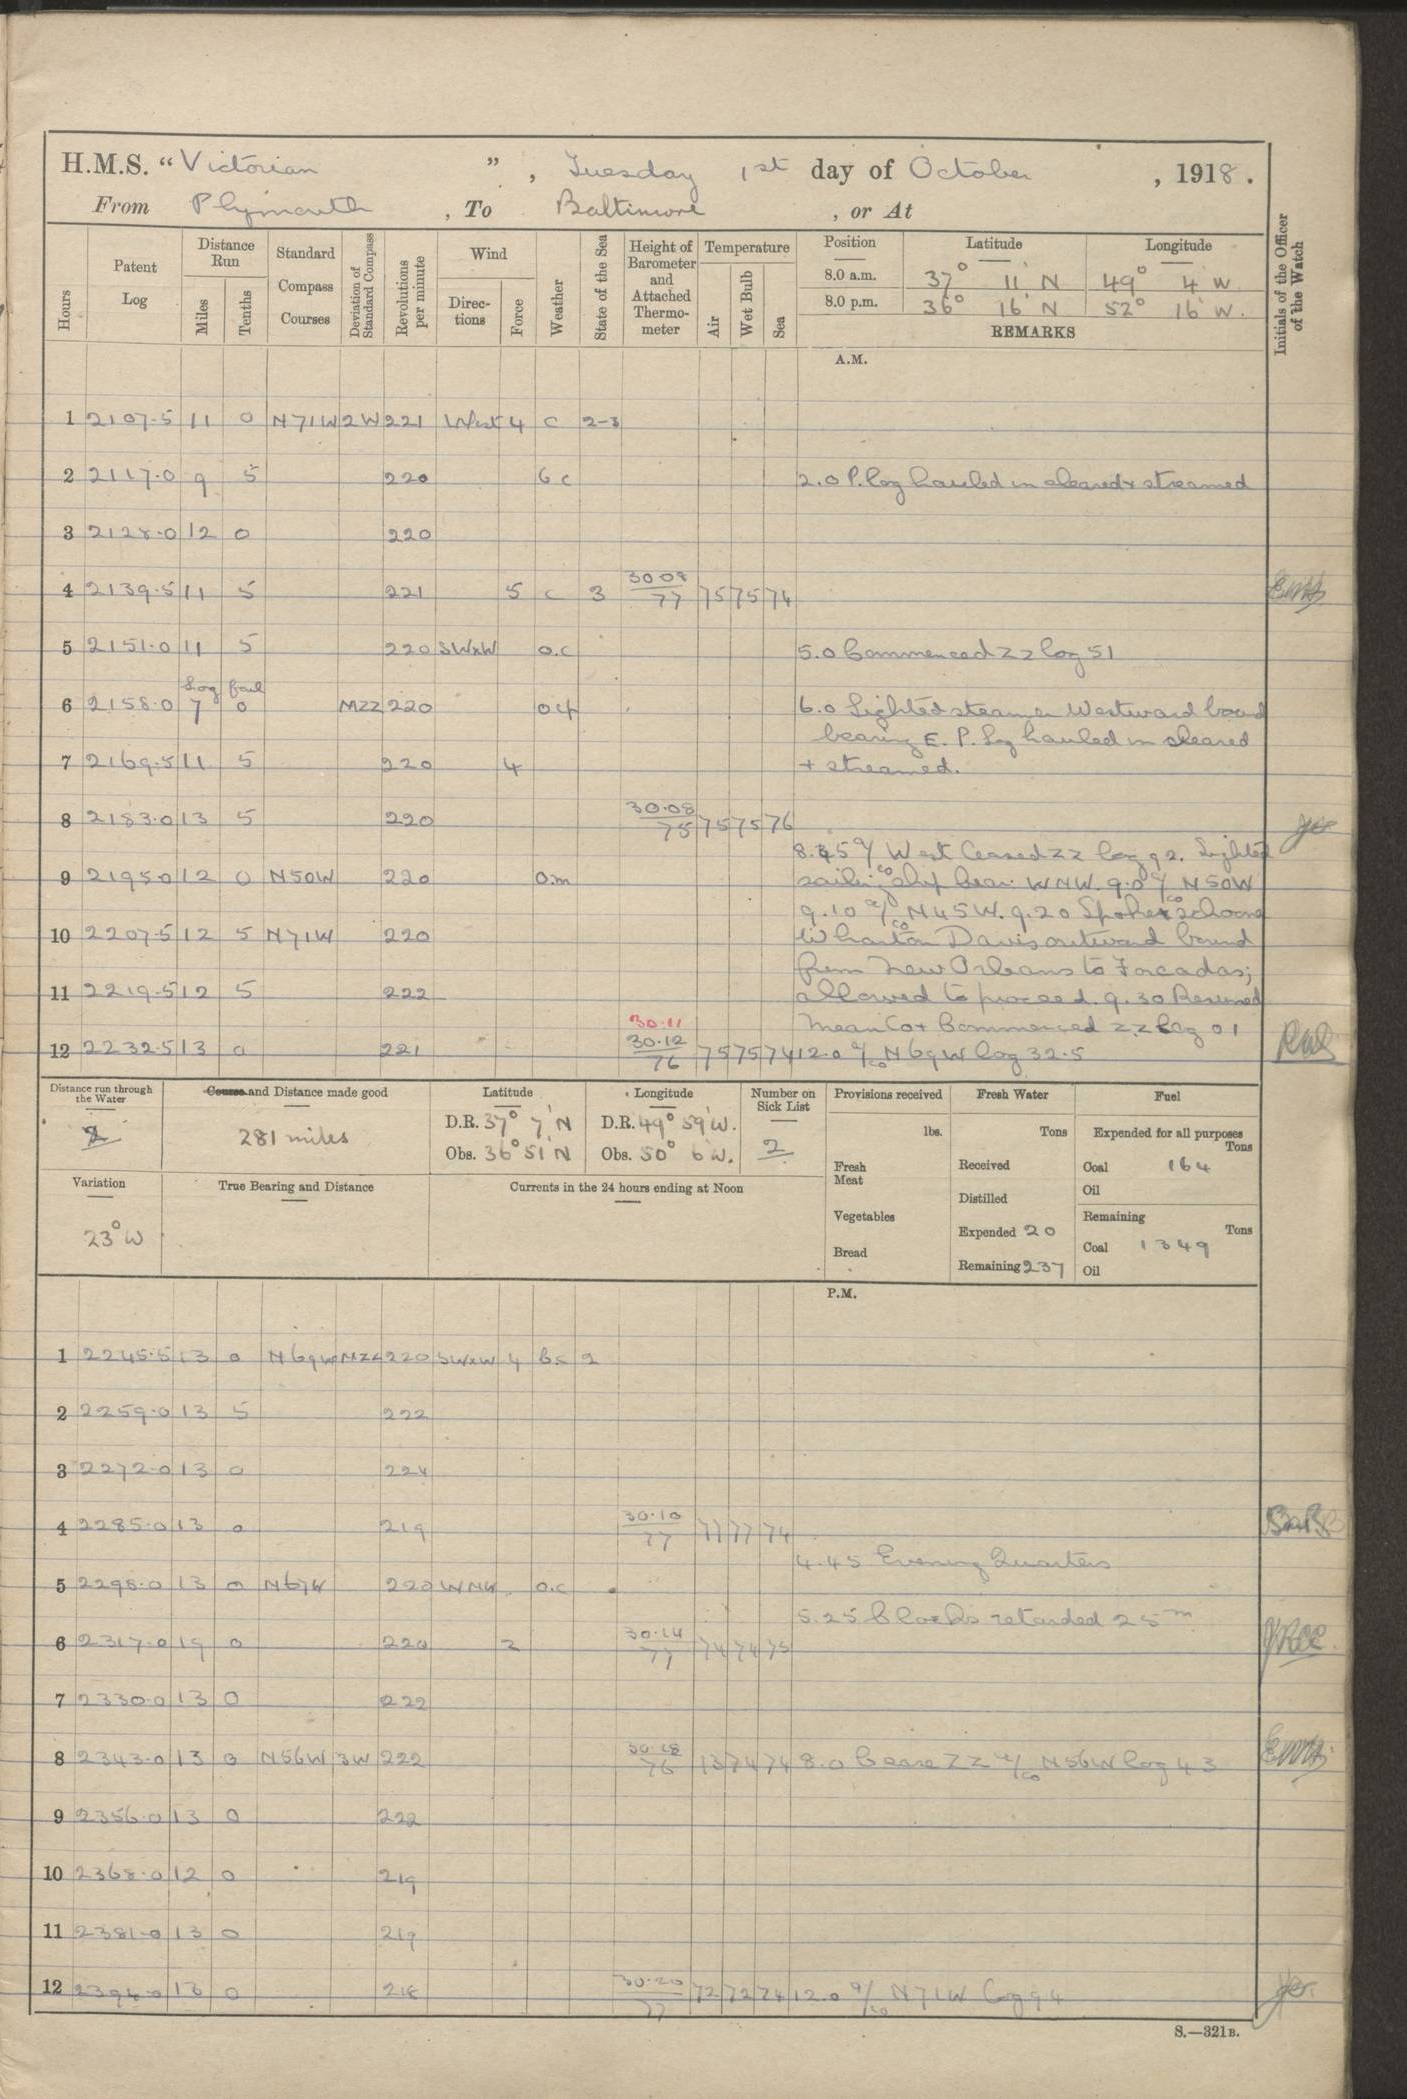 H.M.S. "Victorian", Tuesday 1st day of October, 1918.
From Plymouth, To Baltimore, or At
Hours Patent Log Distance Run Miles Tenths Standard Compass Courses Deviation of Standard Compass Revolutions per minute Wind Directions Force Weather State of the Sea Height of Barometer and Attached Thermometer Temperature Air Wet Bulb Sea Position Latitude Longitude Initials of the Officer of the Watch
8.0 a.m. 37° 11' N 49° 4' W
8.0 p.m. 36° 16' N 52° 16' W.
REMARKS
A.M.
1 2107.5 11 0 N71W 2W 221 West 4 c 2-3
2 2117.0 9 5 220 bc 2.0 P. log hauled in cleared & streamed
3 2128.0 12 0 220
4 2139.5 11 5 221 5 c 3 30.08/77 75 75 74
5 2151.0 11 5 220 SWxW o.c 5.0 Commenced ZZ log 51
Log foul
6 2158.0 7 0 MZZ 220 ocp 6.0 Sighted steamer Westward bound
bearing E. P. Log hauled in cleared
7 2169.5 11 5 220 4 + streamed.
8 2183.0 13 5 220 30.08/75 75 75 76
8.45 a/co West Ceased ZZ log 92. Sighted
9 2195.0 12 0 N50W 220 o.m sailing ship bear. WNW. 9.0 a/co N50W
9.10 a/co N45W. 9.20 Spoke schooner
10 2207.5 12 5 N71W 220 Wharton Davis outward bound
from New Orleans to Forcados;
11 2219.5 12 5 222 allowed to proceed. 9.30 Resumed
30.11 Mean Co + Commenced ZZ log 01
12 2232.5 13 0 221 30.12/76 75 75 74 12.0 a/co N69W log 32.5
Distance run through the Water Course and Distance made good Latitude Longitude Number on Sick List Provisions received Fresh Water Fuel
281 miles D.R. 37° 7' N D.R. 49° 59' W. 2 lbs. Tons Expended for all purposes Tons
Obs. 36° 51' N Obs. 50° 6' W. Fresh Meat Received Coal 164
Distilled Oil
Variation True Bearing and Distance Currents in the 24 hours ending at Noon Vegetables Expended 20 Remaining Tons
23° W Bread Remaining 237 Coal 1349
Oil
P.M.
1 2245.5 13 0 N69W MZZ 220 SWxW 4 bc 2
2 2259.0 13 5 222
3 2272.0 13 0 224
4 2285.0 13 0 219 30.10/77 77 77 74
4.45 Evening Quarters
5 2298.0 13 0 N67W 220 WNW o.c
5.25 Clocks retarded 25m
6 2317.0 19 0 220 2 30.14/77 74 74 75
7 2330.0 13 0 222
8 2343.0 13 0 N56W 3W 222 30.18/76 73 74 74 8.0 Cease ZZ a/co N56W log 43
9 2356.0 13 0 222
10 2368.0 12 0 219
11 2381.0 13 0 219
12 2394.0 13 0 218 30.20/77 72 72 74 12.0 a/co N71W Log 94
S.—321B.